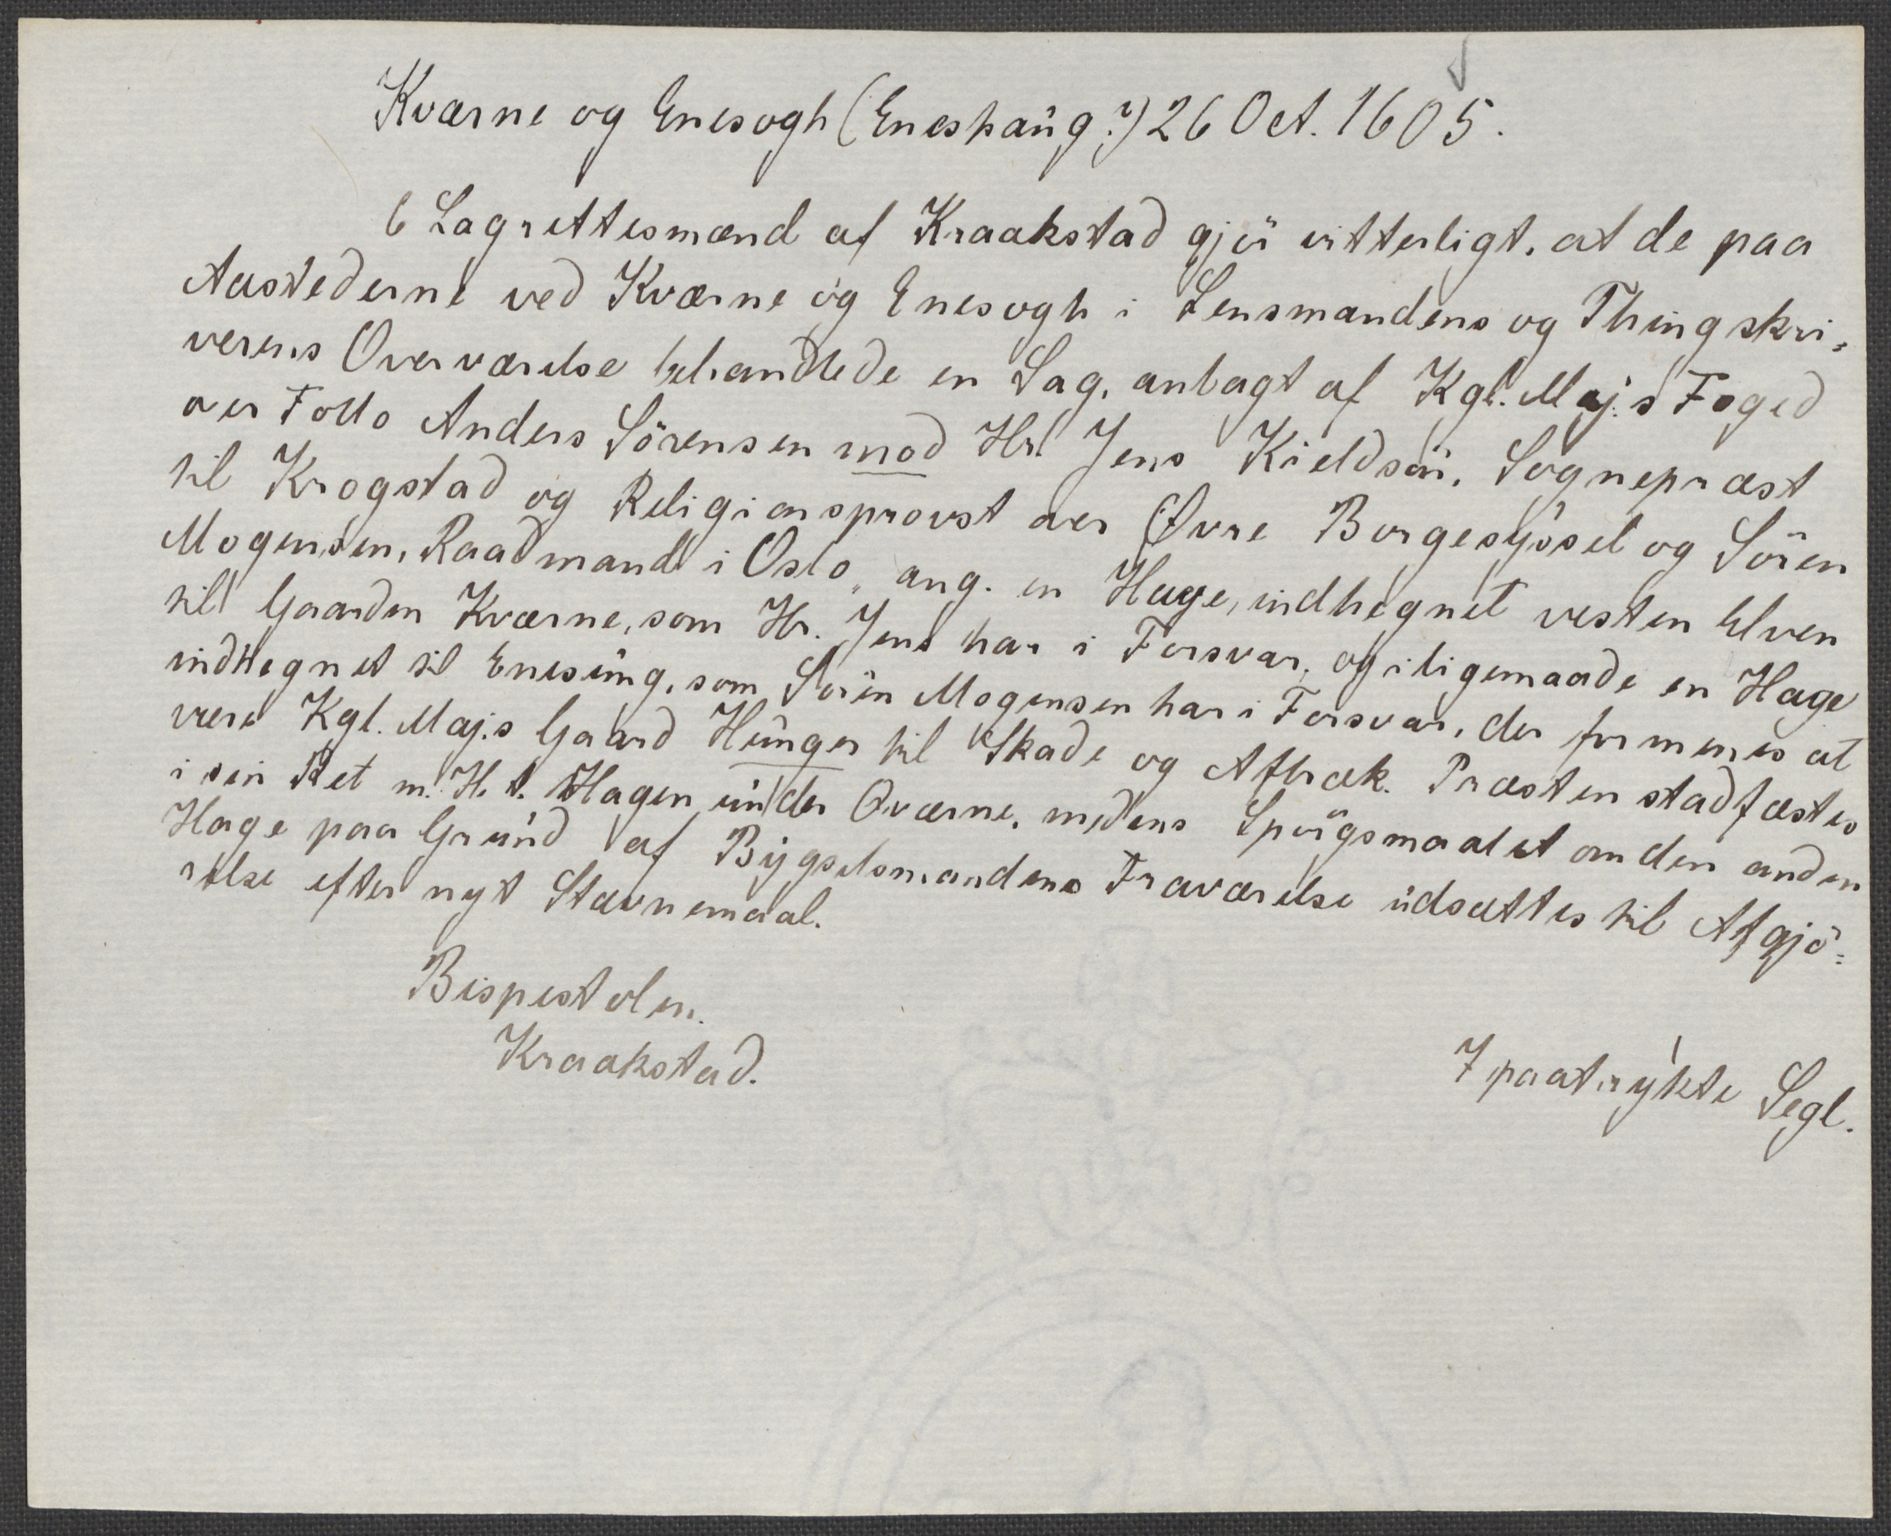 Kværne og Enesogh (Eneshaug?) 26 Oct. 1605.
6 Lagrettesmænd af Kraakstad gjör vitterligt, at de paa
Aastederne ved Kværne og Enesogh i Lensmandens og Thingskri-
verens Overværelse behandlede en Sag, anlagt af Kgl. Maj.s Foged
over Follo Anders Sörensen mod Hr. Jens Kieldsön, Sognepræst
til Krogstad og Religionsprovst over Övre Borgesyssel og Sören
Mogensen, Raadmand i Oslo, ang. en Hage, indhegnet vesten Elven
til Gaarden Kværne, som Hr. Jens har i Forsvar, og iligemaade en Hage
indhegnet til Enesung, som Sören Mogensen har i Forsvar, der formenes at
være Kgl. Maj.s Gaard Hunger til Skade og Afbræk. Præsten stadfæstes
i sin Ret m. H. t. Hagen under Qværne, medens Spörgsmaalet om den anden
Hage paa Grund af Bygselsmandens Fraværelse udsættes til Afgjö-
relse efter nyt Stævnemaal.
Bispestolen.
Kraakstad.
7 paatrykte Segl.